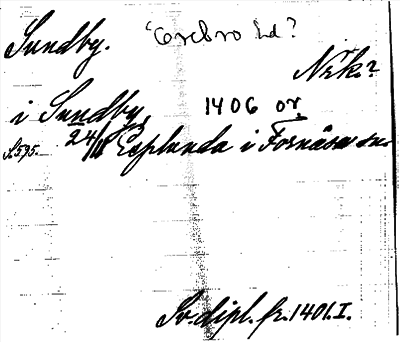 Sundby. Örebro hd?
Närk.?
i Sundby, 1406 or.
S.595. 24/11 Esplunda i Fornåsa sn.
Sv. dipl. fr. 1401. I.